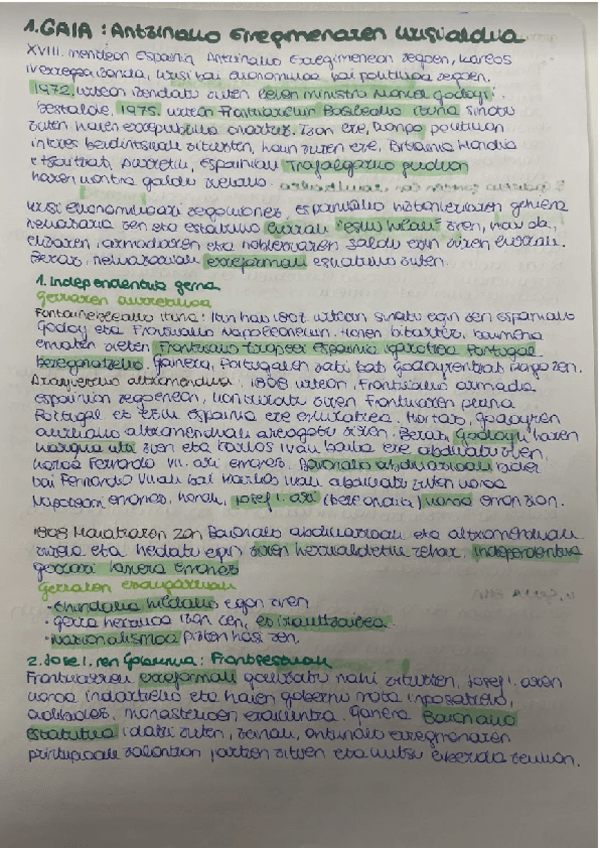 1.GAIA : Antzinako Erregimenaren krisialdia
XVIII. mendean Espainia Antzinako Erregimenean zegoen, karlos
IV erregea zela, krisi bai ekonomikoa bai politikoa zegoen.
1972. urtean izendatu zuten lehen ministro Manuel Godoy.
Bestalde, 1975. urtean Frantziarekin Basileako ituna sinatu
zuten haien errepublika onartuz. Izan ere, kanpo politikan
interes berdintsuak zituzten, haien zuten ere, Britainia Handia
etsaitzat, Espainiak Trafalgarko guduan
haren kontra galdu zuelako.
krisi ekonomikoari zegokionez, espainiako biztanleriaren gehiena
nekazaria zen eta estatuko lurrak "esku hilak" ziren, hau da,
elizaren, armadaren eta nobleziaren jabetza egin ziren lurrak.
Beraz, nekazariak erreformak eskatu zuten.
1. Independentzia gerra
Gerraren aurrekoa
Fontainebleauko ituna: Itun hau 1807 urtean sinatu egin zen espainiako
Godoy eta Frantziako Napoleonekin. Honen bitartez, baimena
ematen zieten Frantziako tropei Espainia igarotzea Portugal
bereganatzeko. Gainera, Portugalen zati bat Godoyrentzat izango zen.
Aranjuezeko altxamendua: 1808 urtean, Frantziako armada
espainian zegoenean, konturatu ziren Frantziaren plana
Portugal ez ezik Espainia ere Hortaz, Godoyren
aurkako altxamenduak areagotu ziren. Beraz, Godoyk haren
kargua utzi zuen eta Karlos IVak baita ere abdikatu zuen,
koroa Fernando VII. ari emanez. Baionako abdikazioak
bai Fernando VIIak bai Karlos IVak abdikatu zuten koroa
Napoleoni emanez, honek, Jose I. ari (bere anaia) koroa eman zion.
1808 Maiatzaren 2an Baionako abdikazioak eta altxamenduak
zirela eta hedatu egin ziren herrialdetik zehar, Independentzia
gerrari hasiera emanez
Gerraren ezaugarriak
· egon ziren
· gerra herrikoia izan zen,
· Nazionalismoa pizten hasi zen.
2. Jose I. ren Gobernua: Frantsestuak
Frantziarrek erreformak gauzatu nahi zituzten, Jose I. aren
koroa indartzeko eta haien gobernu mota inposatzeko,
adibidez, monasterioen Gainera Baionako
Estatutua idatzi zuten, zeinak, antzinako erregimenaren
printzipioak zalantzan jartzen zituen eta